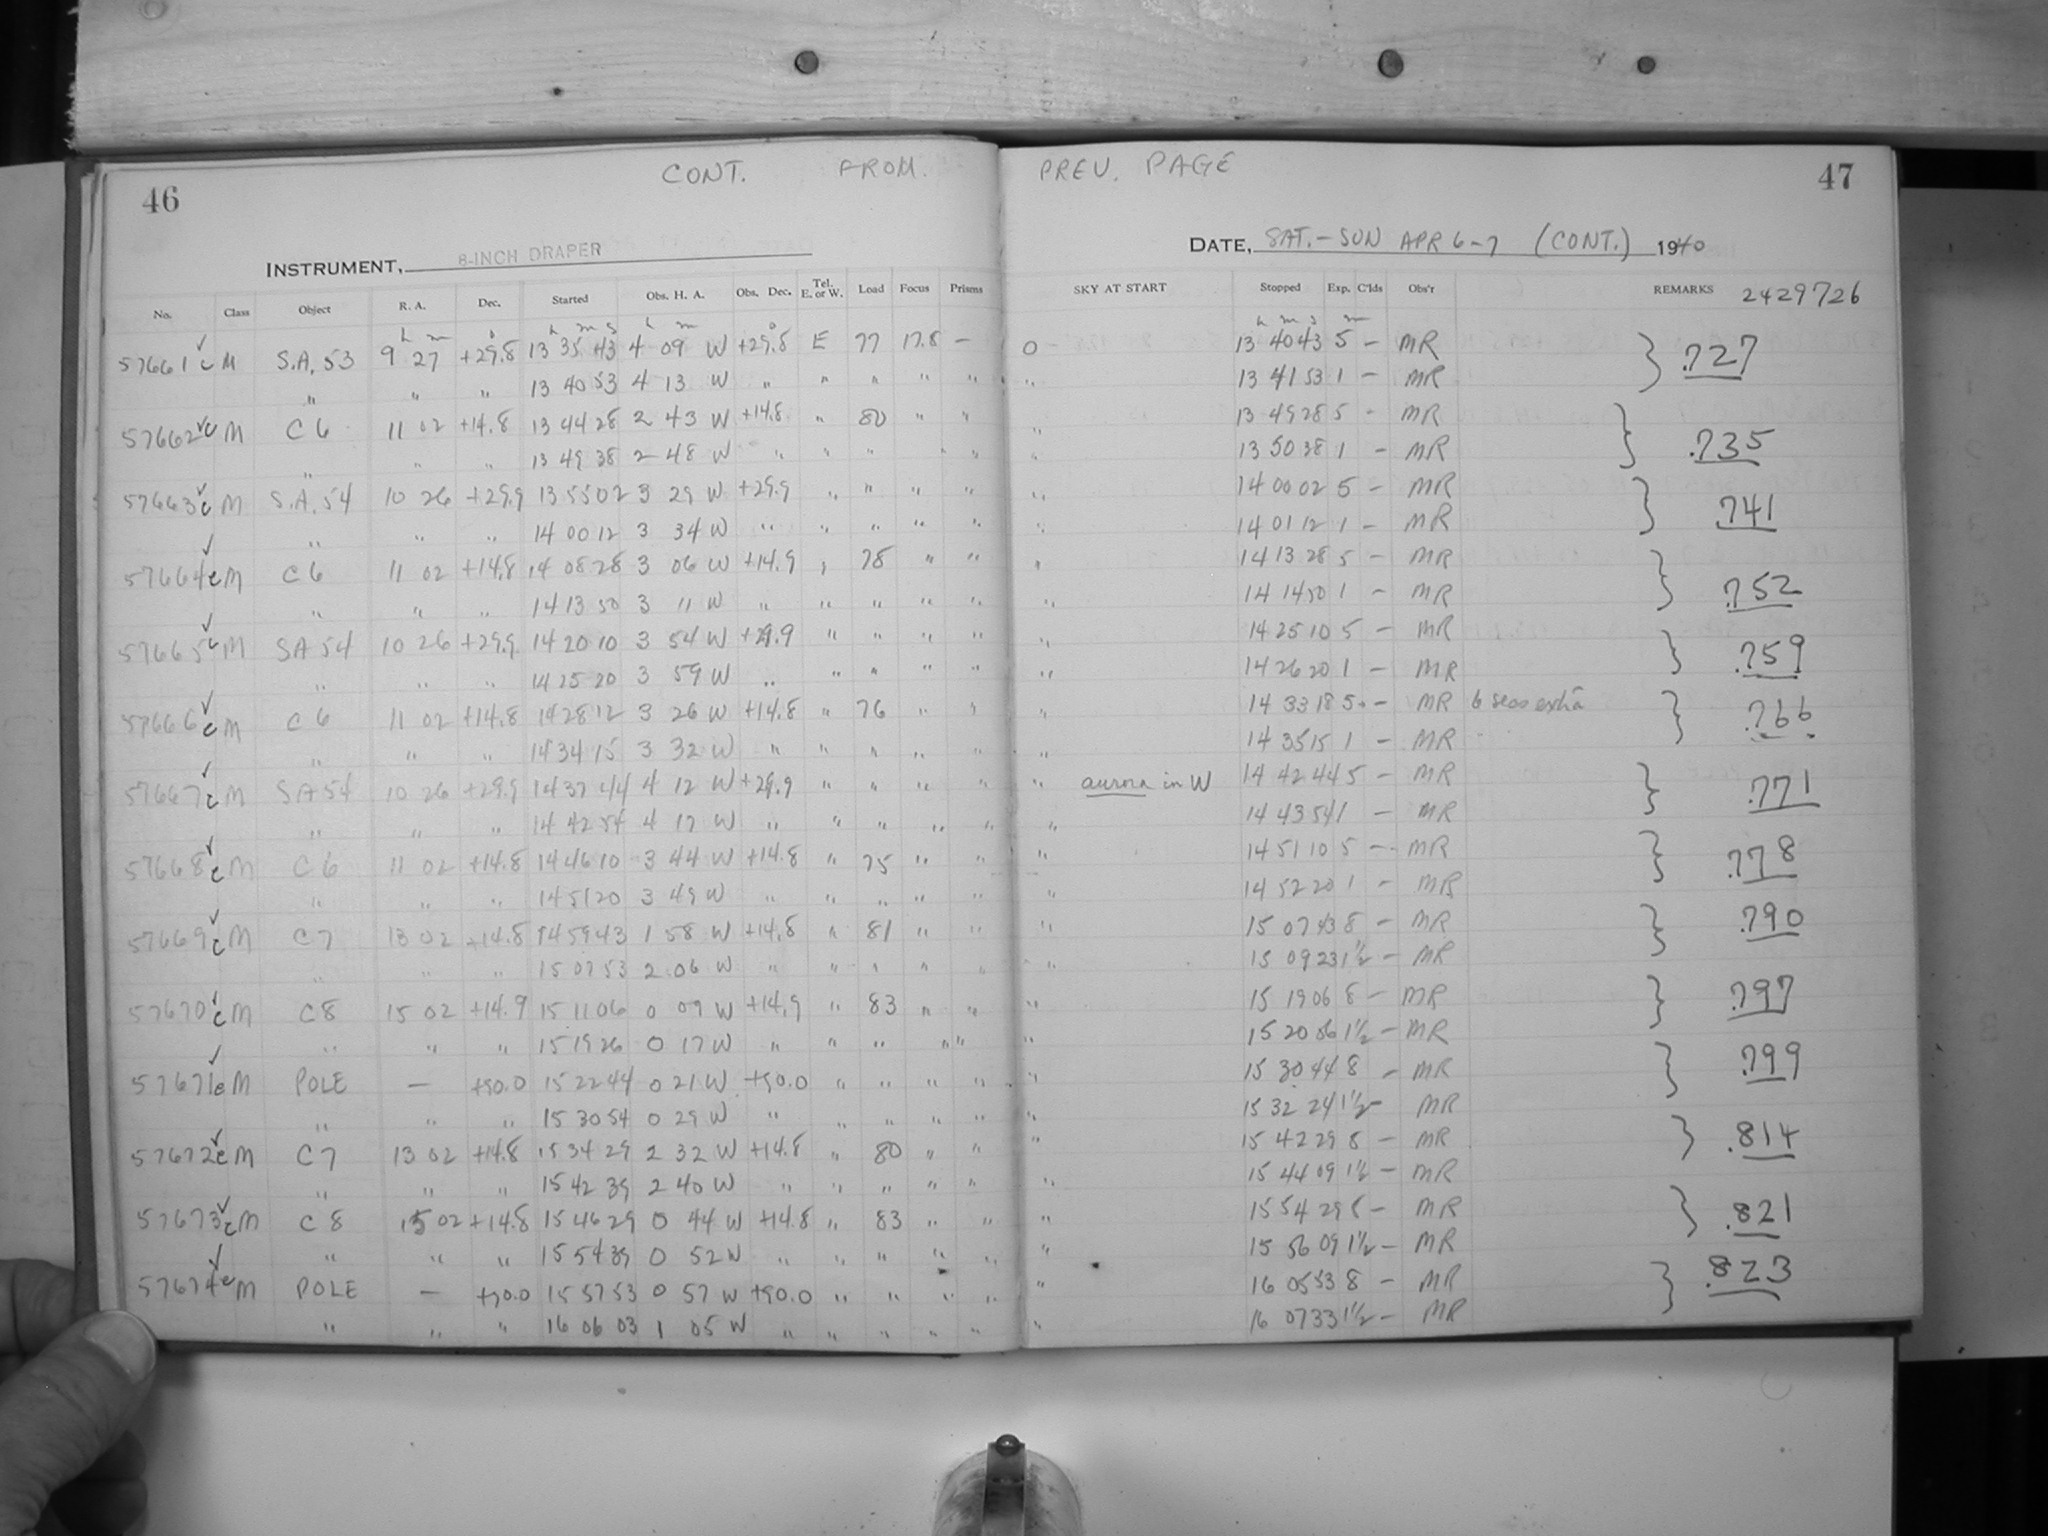 CONT. FROM. PREV. PAGE
46 47
INSTRUMENT, 8-INCH DRAPER DATE, SAT.-SUN APR 6-7 (CONT.) 1940
No. Class Object R. A. Dec. Started Obs. H. A. Obs. Dec. Tel. E. or W. Load Focus Prisms SKY AT START Stopped Exp. C'lds Obs'r REMARKS 2429726
h m ° h m s h m ° h m s m
57661 c M S.A. 53 9 27 +29.8 13 35 43 4 09 W +29.8 E 77 17.8 — 0 13 40 43 5 — MR } .727
" " " 13 40 53 4 13 W " " " " " " 13 41 53 1 — MR
57662 c M C 6 11 02 +14.8 13 44 28 2 43 W +14.8 " 80 " " " 13 49 28 5 - MR } .735
" " " 13 49 38 2 48 W " " " " " " 13 50 38 1 - MR
57663 c M S.A. 54 10 26 +29.9 13 55 02 3 29 W +29.9 " " " " " 14 00 02 5 - MR } .741
" " " 14 00 12 3 34 W " " " " " " 14 01 12 1 - MR
57664 c M C 6 11 02 +14.8 14 08 28 3 06 W +14.9 " 78 " " " 14 13 28 5 - MR } .752
" " " 14 13 50 3 11 W " " " " " " 14 14 50 1 - MR
57665 c M SA 54 10 26 +29.9 14 20 10 3 54 W +29.9 " " " " " 14 25 10 5 - MR } .759
" " " 14 25 20 3 59 W " " " " " " 14 26 20 1 - MR
57666 c M C 6 11 02 +14.8 14 28 12 3 26 W +14.8 " 76 " " " 14 33 18 5. - MR 6 secs extra } .766
" " " 14 34 15 3 32 W " " " " " " 14 35 15 1 - MR
57667 c M SA 54 10 26 +29.9 14 37 44 4 12 W +29.9 " " " " " aurora in W 14 42 44 5 - MR } .771
" " " 14 42 54 4 17 W " " " " " " 14 43 54 1 - MR
57668 c M C 6 11 02 +14.8 14 46 10 3 44 W +14.8 " 75 " " " 14 51 10 5 - MR } .778
" " " 14 51 20 3 49 W " " " " " " 14 52 20 1 - MR
57669 c M C 7 13 02 +14.8 14 59 43 1 58 W +14.8 " 81 " " " 15 07 43 8 - MR } .790
" " " 15 07 53 2 06 W " " " " " " 15 09 23 1½ - MR
57670 c M C 8 15 02 +14.9 15 11 06 0 09 W +14.9 " 83 " " " 15 19 06 8 - MR } .797
" " " 15 19 26 0 17 W " " " " " " 15 20 56 1½ - MR
57671 c M POLE — +90.0 15 22 44 0 21 W +90.0 " " " " " 15 30 44 8 - MR } .799
" " " 15 30 54 0 29 W " " " " " " 15 32 24 1½ - MR
57672 c M C 7 13 02 +14.8 15 34 29 2 32 W +14.8 " 80 " " " 15 42 29 8 - MR } .814
" " " 15 42 39 2 40 W " " " " " " 15 44 09 1½ - MR
57673 c M C 8 15 02 +14.8 15 46 29 0 44 W +14.8 " 83 " " " 15 54 29 8 - MR } .821
" " " 15 54 39 0 52 W " " " " " " 15 56 09 1½ - MR
57674 c M POLE — +90.0 15 57 53 0 57 W +90.0 " " " " " 16 05 53 8 - MR } .823
" " " 16 06 03 1 05 W " " " " " " 16 07 33 1½ - MR